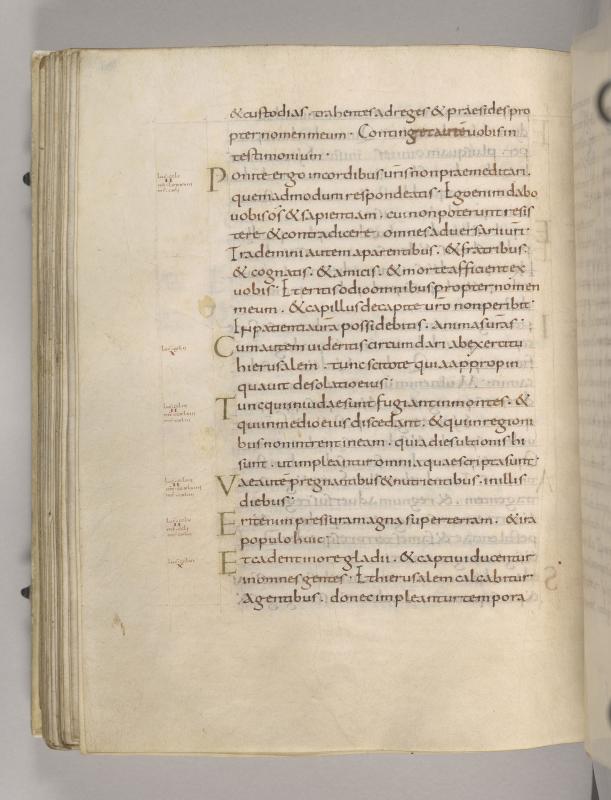 & custodias . trahentes adreges & praesides pro
pter nomen meum . Contingetautē uobis in
testimonium .
Ponite ergo incordibus uris non praemeditari .
quemadmodum respondeatis . Ego enim dabo
uobis os & sapientiam . cui non poterunt resis
tere & contradicere . omnes aduersarii uri .
Trademini autem aparentibus . & fratribus .
& cognatis . & amicis . & morte afficient ex
uobis . Et eritis odio omnibus propter nomen
meum . & capillus decapite uro non peribit .
In patientia ura possidebitis . animas uras .
Cum autem uideritis circumdari abexercitu
hierusalem . tunc scitote quia appropin
quauit desolatio eius .
Tunc qui iniudaea sunt fugiant inmontes . &
qui inmedio eius discedant . & qui inregioni
bus non intrent ineam . quia dies ultionis hi
sunt . ut impleantur omnia quae scripta sunt .
Vae autē pregnantibus & nutrientibus . inillis
diebus .
Erit enim pressura magna super terram . & ira
populo huic .
Et cadent inore gladii . & captiui ducentur
inomnes gentes . Et hierusalem calcabitur
Agentibus . donec impleantur tempora